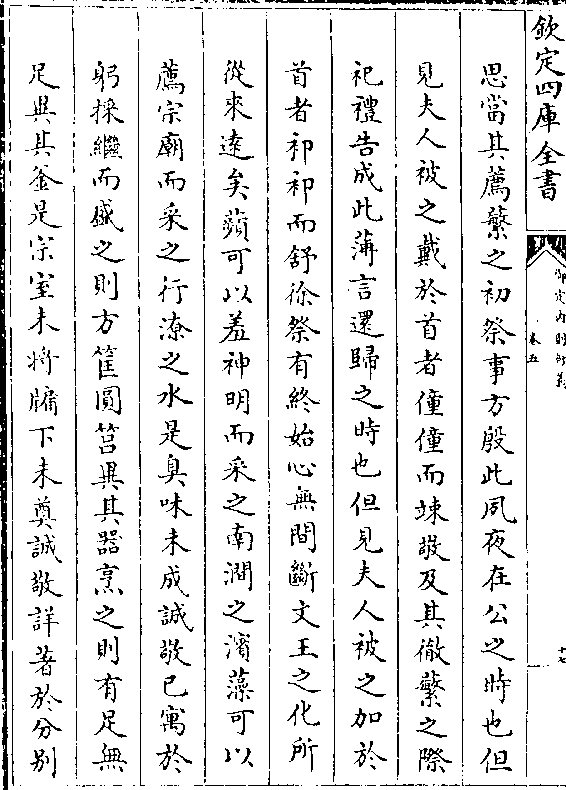 欽定四庫全書
御定内則衍義
卷五
十七
思當其薦蘩之初祭事方殷此夙夜在公之時也但
見夫人被之戴於首者僮僮而竦敬及其徹蘩之際
祀禮告成此薄言還歸之時也但見夫人被之加於
首者祁祁而舒徐祭有終始心無間斷文王之化所
從來逺矣蘋可以羞神明而采之南澗之濱藻可以
薦宗廟而采之行潦之水是臭味未成誠敬已寓於
躬採繼而盛之則方筐圓筥異其器烹之則有足無
足異其釜是宗室未將牖下未奠誠敬詳著於分別